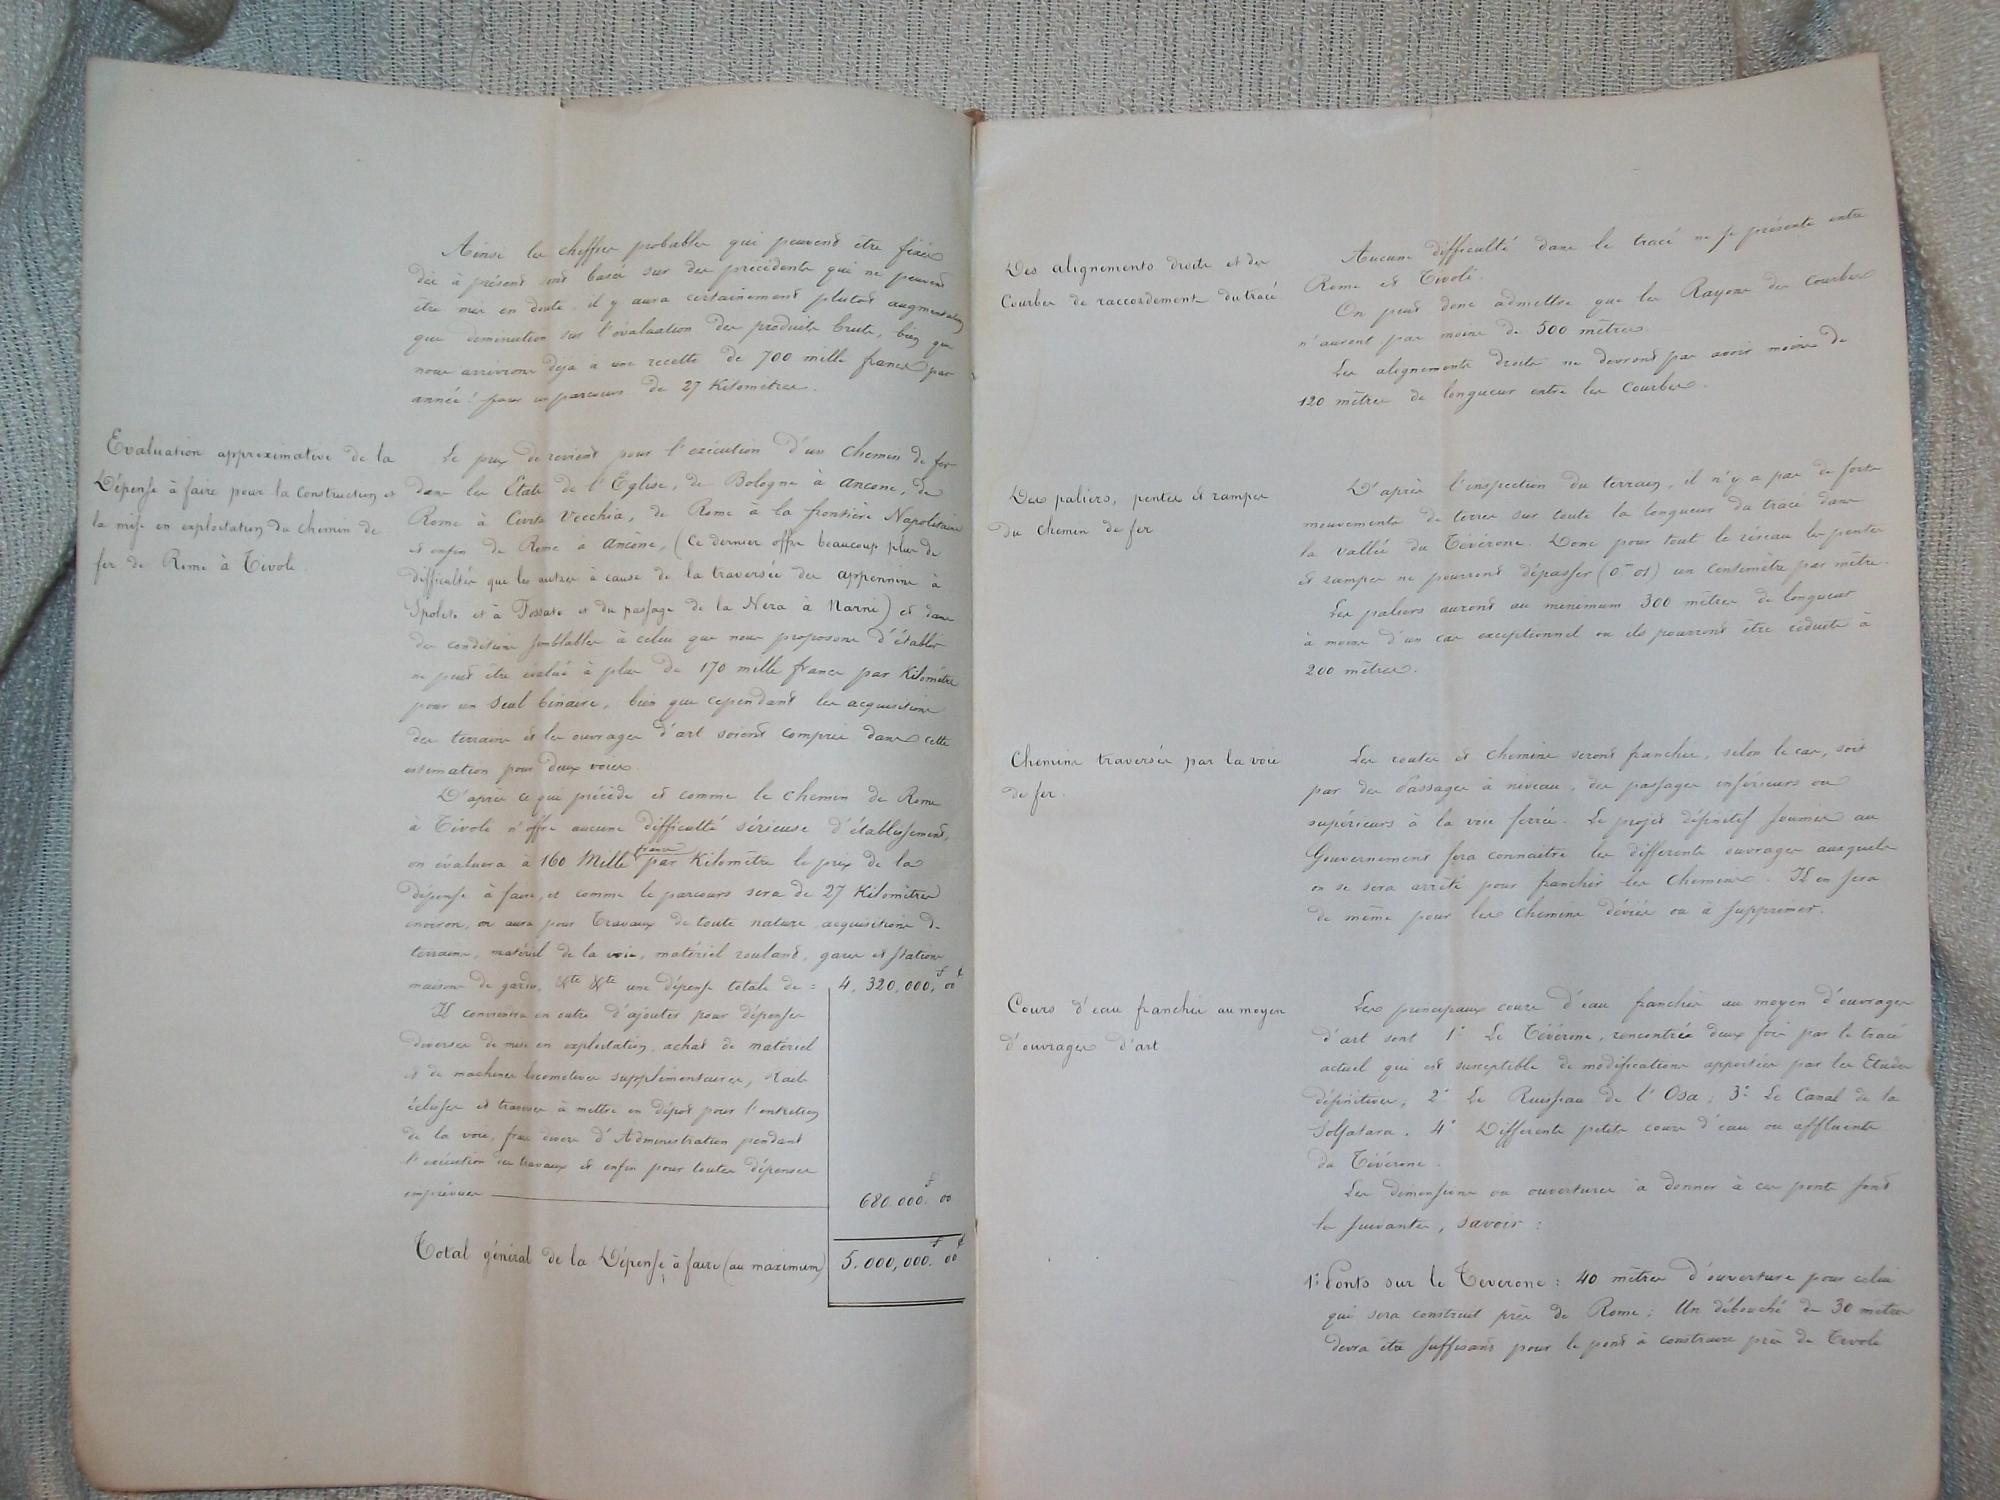 Ainsi les chiffres probables qui peuvent être fixés
dès à présent sont basés sur des précédents qui ne peuvent
être mis en doute. il y aura certainement plutôt augmentation
que diminution sur l'évaluation des produits bruts, bien que
nous arrivions déjà à une recette de 700 mille francs par
année! pour un parcours de 27 Kilomètres.
Evaluation approximative de la
Dépense à faire pour la Construction et
la mise en exploitation du chemin de
fer de Rome à Tivoli.
Le prix de revient pour l'exécution d'un chemin de fer
dans les Etats de l'Eglise, de Bologne à Ancone, de
Rome à Civita Vecchia, de Rome à la frontière Napolitaine
et enfin de Rome à Ancône, (ce dernier offre beaucoup plus de
difficultés que les autres à cause de la traversée des appennins à
Spoleto et à Fossato et du passage de la Nera à Narni) et dans
des conditions semblables à celui que nous proposons d'établir
ne peut être évalué à plus de 170 mille francs par Kilomètre
pour un seul binaire, bien que cependant les acquisitions
des terrains et les ouvrages d'art soient compris dans cette
estimation pour deux voies.
D'après ce qui précède et comme le chemin de Rome
à Tivoli n'offre aucune difficulté sérieuse d'établissement,
on évaluera à 160 Mille francs par Kilomètre le prix de la
dépense à faire, et comme le parcours sera de 27 Kilomètres
environ, on aura pour Travaux de toute nature, acquisitions de
terrains, matériel de la voie, matériel roulant, gares et stations
maisons de gardes, &te &te une dépense totale de = 4,320,000,f 00 c
Il conviendra en outre d'ajouter pour dépenses
diverses de mise en exploitation, achat de matériel
et de machines locomotives supplémentaires, Rails
éclisses et traverses à mettre en dépôt pour l'entretien
de la voie, frais divers d'Administration pendant
l'exécution des travaux et enfin pour toutes dépenses
imprévues 680.000.f 00
Total général de la Dépense à faire (au maximum) 5.000,000.f 00 c
Des alignements droits et des
Courbes de raccordement du tracé
Aucune difficulté dans le tracé ne se présente entre
Rome et Tivoli.
On peut donc admettre que les Rayons des Courbes
n'auront pas moins de 500 mètres.
Les alignements droits ne devront pas avoir moins de
120 mètres de longueur entre les Courbes.
Des paliers, pentes et rampes
du chemin de fer
D'après l'inspection du terrain, il n'y a pas de forts
mouvements de terres sur toute la longueur du tracé dans
la vallée du Tévérone. Donc pour tout le réseau les pentes
et rampes ne pourront dépasser (0m01) un centimètre par mètre.
Les paliers auront au minimum 300 mètres de longueur
à moins d'un cas exceptionnel où ils pourront être réduits à
200 mètres.
Chemins traversés par la voie
de fer.
Les routes et chemins seront franchis, selon le cas, soit
par des Passages à niveau, des passages inférieurs ou
supérieurs à la voie ferrée. Le projet définitif soumis au
Gouvernement fera connaitre les différents ouvrages auxquels
on se sera arrêté pour franchir les Chemins. Il en sera
de même pour les chemins déviés ou à supprimer.
Cours d'eau franchis au moyen
d'ouvrages d'art
Les principaux cours d'eau franchis au moyen d'ouvrages
d'art sont 1° Le Tévérone, rencontrée deux fois par le tracé
actuel qui est susceptible de modifications apportées par les Etudes
définitives; 2° Le Ruisseau de l'Osa; 3° Le Canal de la
Solfatara. 4° Differents petits cours d'eau ou affluents
du Tévérone.
Les dimensions ou ouvertures à donner à ces ponts sont
les suivantes, savoir:
1° Ponts sur le Teverone: 40 mètres d'ouverture pour celui
qui sera construit près de Rome; Un débouché de 30 mètres
devra être suffisant pour le pont à construire près de Tivoli